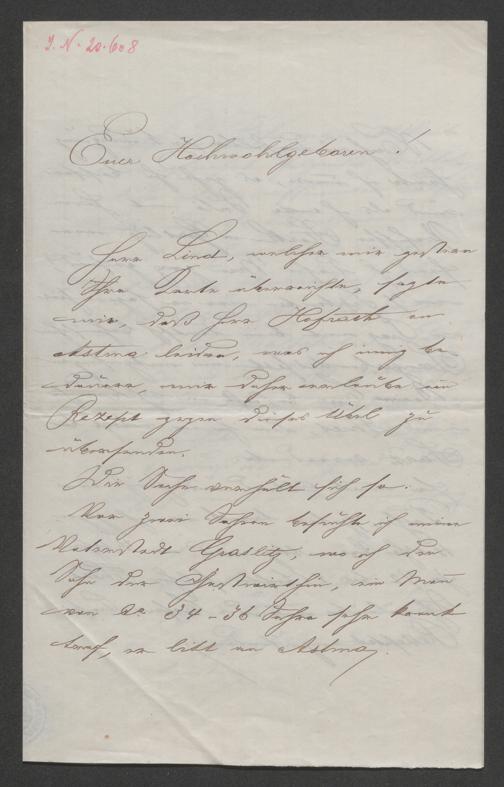 J. N. 20.608
Euer Hochwohlgeboren!
Herr Lind, welcher mir gestern
Ihre Karte überreichte, sagte
mir, daß Herr Hofrath an
Astma leiden, was ich innig be-
dauere, mir daher erlaube ein
Rezept gegen dieses Übel zu
übersenden.
Die Sache verhält sich so.
Vor zwei Jahren besuchte ich meine
Vaterstadt Graslitz, wo ich den
Sohn der Gastwirthin, ein Mañ
von ca 34-36 Jahre sehr krank
traf, er litt an Astma,